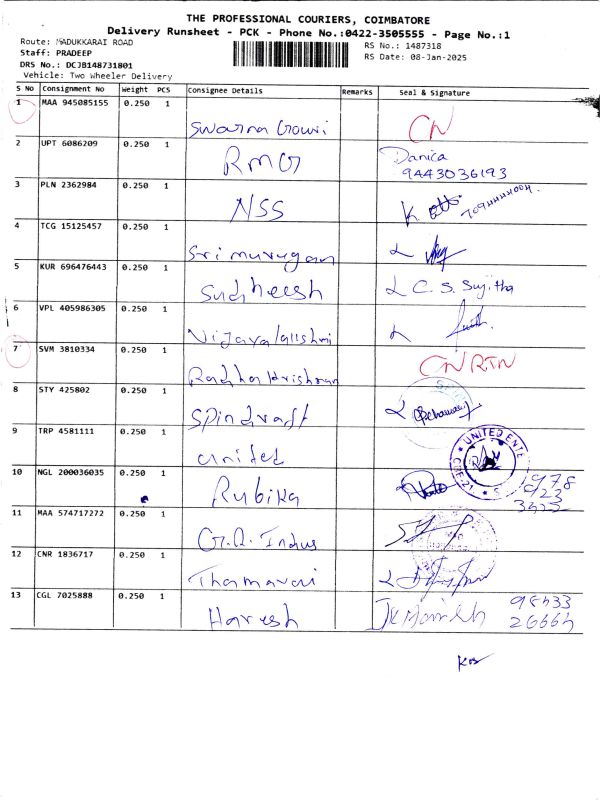 THE PROFESSIONAL COURIERS, COIMBATORE
Delivery Runsheet - PCK - Phone No.:0422-3505555 - Page No.:1
Route: MADUKKARAI ROAD
RS No.: 1487318
Staff: PRADEEP
RS Date: 08-Jan-2025
DRS No.: DCJB148731801
Vehicle: Two Wheeler Delivery
S No Consignment No Weight PCS Consignee Details Remarks Seal & Signature
1 MAA 945085155 0.250 1
Swarna Gowri CN
2 UPT 6086209 0.250 1
RMG Danica
9443036193
3 PLN 2362984 0.250 1
NSS K
4 TCG 15125457 0.250 1
Sri murugan
5 KUR 696476443 0.250 1
Sudheesh C. S. Sujitha
6 VPL 405986305 0.250 1
Vijayalalshmi
7 SVM 3810334 0.250 1
Radhakrishnan CN RTN
8 STY 425802 0.250 1
Spindraft
9 TRP 4581111 0.250 1
united UNITED ENTE
10 NGL 200036035 0.250 1
Rubika
11 MAA 574717272 0.250 1
G.R. Indus
12 CNR 1836717 0.250 1
Thamarai
13 CGL 7025888 0.250 1
Haresh